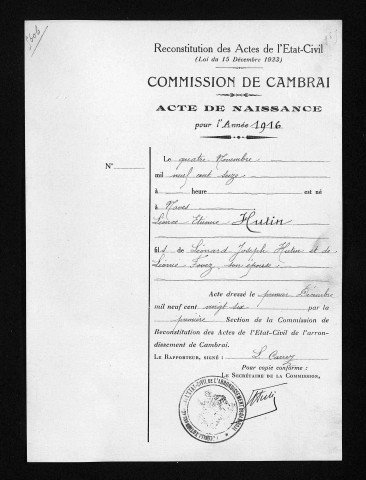 Reconstitution des Actes de l'Etat-Civil
(Loi du 15 Décembre 1923)
COMMISSION DE CAMBRAI
ACTE DE NAISSANCE
pour l'Année 1916
N°
Le quatre Novembre
mil neuf cent seize
à heure est né
à Naves
Léonce Etienne Hutin
fils de Léonard Joseph Hutin et de
Léonie Fovez, son épouse
Acte dressé le premier Décembre
mil neuf cent vingt six par la
première Section de la Commission de
Reconstitution des Actes de l'Etat-Civil de l'arron-
dissement de Cambrai.
Le Rapporteur, signé :
Pour copie conforme :
Le Secrétaire de la Commission,